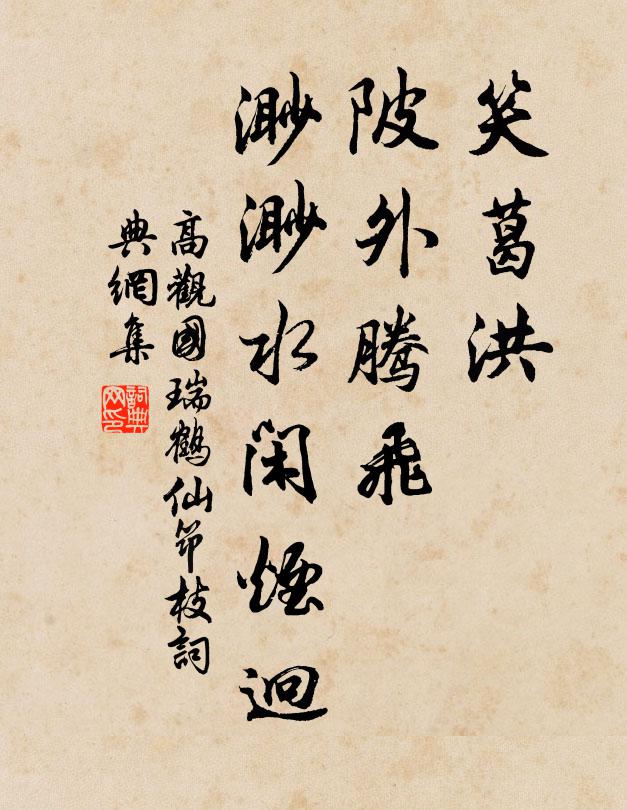 笑葛洪
陂外騰飛
渺渺水閑煙迥
高觀國瑞鶴仙筇枝詞
典網集
詞典網印